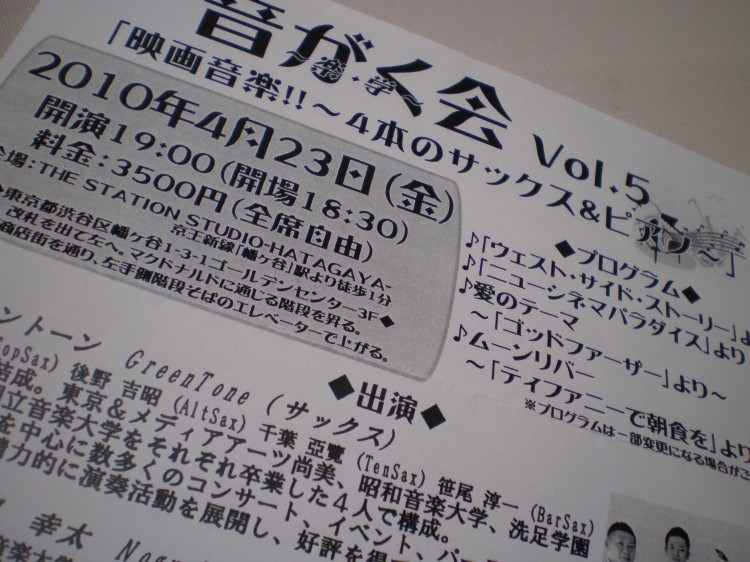 音がく会 Vol.5
～楽・学～
「映画音楽!!～4本のサックス&ピアノ～」
2010年4月23日(金)
開演19:00(開場18:30)
料金:3500円(全席自由)
会場:THE STATION STUDIO-HATAGAYA-
京王新線「幡ヶ谷」駅より徒歩1分
◆東京都渋谷区幡ヶ谷1-3-1ゴールデンセンター3F◆
改札を出て左へ。マクドナルドに通じる階段を昇る。
商店街を通り、左手側階段そばのエレベーターで上がる。
◆プログラム◆
♪「ウェスト・サイド・ストーリー」よ
♪「ニューシネマパラダイス」より
♪愛のテーマ
～「ゴッドファーザー」より～
♪ムーンリバー
～「ティファニーで朝食を」より
※プログラムは一部変更になる場合がご
◆出演◆
ントーン GreenTone (サックス)
opSax) 後野 吉昭 (AltSax) 千葉 亞鸞 (TenSax) 笹尾 淳一 (BarSax)
結成。東京&メディアアーツ尚美、昭和音楽大学、洗足学園
国立音楽大学をそれぞれ卒業した4人で構成。
を中心に数多くのコンサート、イベント、パー
精力的に演奏活動を展開し、好評を得
幸太
音楽大学